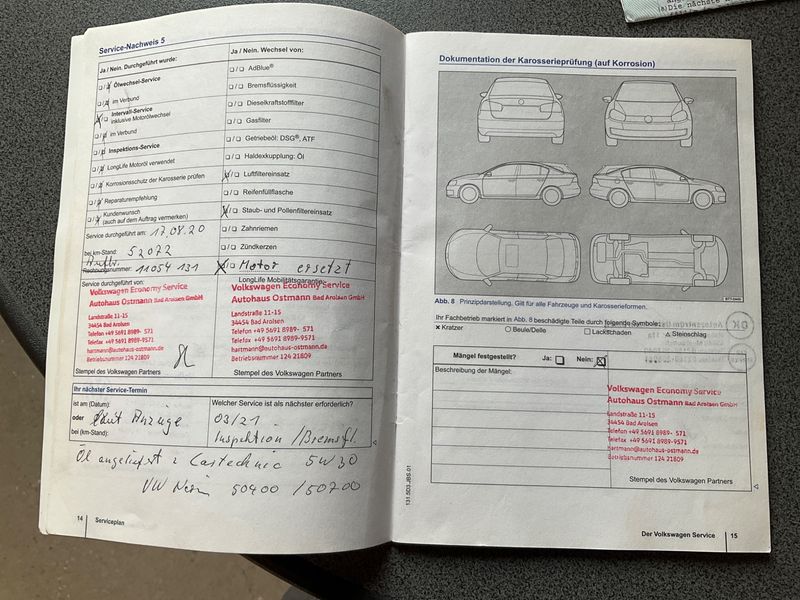 Service-Nachweis 5
Ja / Nein. Durchgeführt wurde:
Ölwechsel-Service
im Verbund
Intervall-Service
inklusive Motorölwechsel
im Verbund
Inspektions-Service
LongLife Motoröl verwendet
Korrosionsschutz der Karosserie prüfen
Reparaturempfehlung
Kundenwunsch
(auch auf dem Auftrag vermerken)
Service durchgeführt am: 17.08.20
bei km-Stand: 52072
Rechnungsnummer: 11054 131
Service durchgeführt von:
Volkswagen Economy Service
Autohaus Ostmann Bad Arolsen GmbH
Landstraße 11-15
34454 Bad Arolsen
Telefon +49 5691 8989- 571
Telefax +49 5691 8989-9571
hartmann@autohaus-ostmann.de
Betriebsnummer 124 21809
Stempel des Volkswagen Partners
Ja / Nein. Wechsel von:
AdBlue®
Bremsflüssigkeit
Dieselkraftstofffilter
Gasfilter
Getriebeöl: DSG®, ATF
Haldexkupplung: Öl
Luftfiltereinsatz
Reifenfüllflasche
Staub- und Pollenfiltereinsatz
Zahnriemen
Zündkerzen
Motor ersetzt
LongLife Mobilitätsgarantie
Volkswagen Economy Service
Autohaus Ostmann Bad Arolsen GmbH
Landstraße 11-15
34454 Bad Arolsen
Telefon +49 5691 8989- 571
Telefax +49 5691 8989-9571
hartmann@autohaus-ostmann.de
Betriebsnummer 124 21809
Stempel des Volkswagen Partners
Ihr nächster Service-Termin
ist am (Datum):
oder laut Anzeige
bei (km-Stand):
Welcher Service ist als nächster erforderlich?
03/21
Inspektion / Bremsfl.
Öl angeliefert : Castechnic 5W30
VW Norm 50400 / 50700
14 Serviceplan
Dokumentation der Karosserieprüfung (auf Korrosion)
Abb. 8 Prinzipdarstellung. Gilt für alle Fahrzeuge und Karosserieformen.
Ihr Fachbetrieb markiert in Abb. 8 beschädigte Teile durch folgende Symbole:
× Kratzer ○ Beule/Delle □ Lackschaden △ Steinschlag
Mängel festgestellt? Ja: Nein:
Beschreibung der Mängel:
Volkswagen Economy Service
Autohaus Ostmann Bad Arolsen GmbH
Landstraße 11-15
34454 Bad Arolsen
Telefon +49 5691 8989- 571
Telefax +49 5691 8989-9571
hartmann@autohaus-ostmann.de
Betriebsnummer 124 21809
Stempel des Volkswagen Partners
131.5D3.JBS.01
Der Volkswagen Service 15